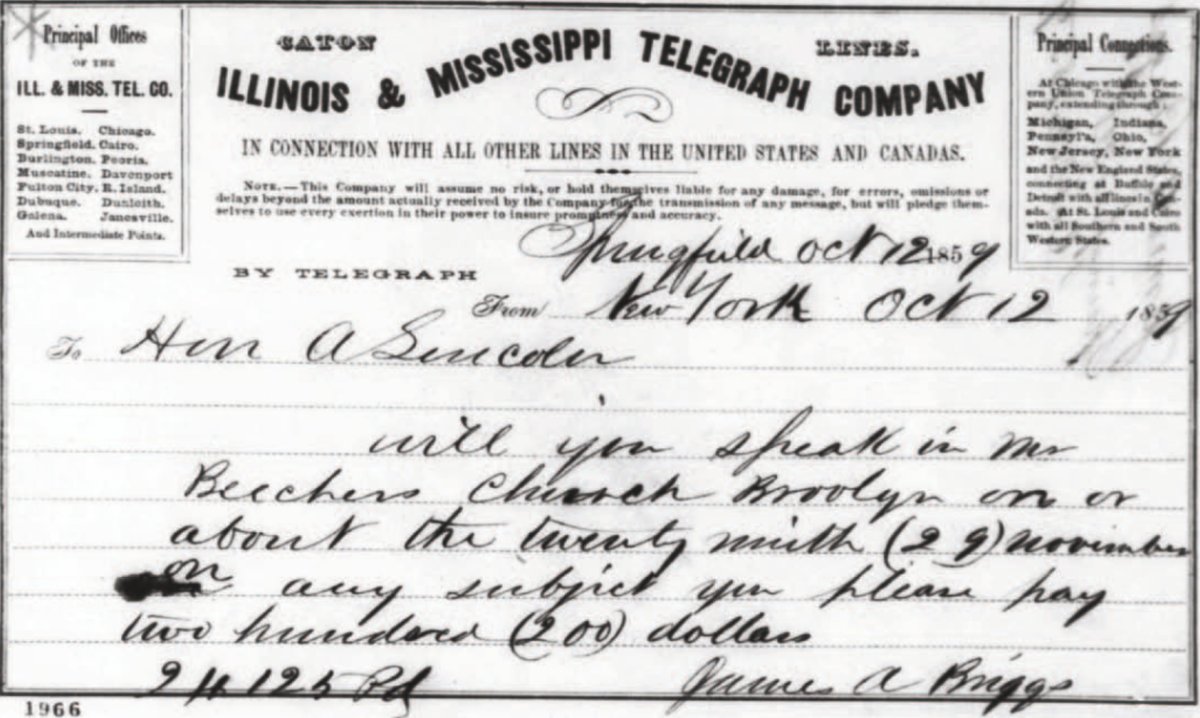 Principal Offices
OF THE
ILL. & MISS. TEL. CO.
St. Louis. Chicago.
Springfield. Cairo.
Burlington. Peoria.
Muscatine. Davenport
Fulton City. R. Island.
Dubuque. Dunleith.
Galena. Janesville.
And Intermediate Points.
CATON LINES.
ILLINOIS & MISSISSIPPI TELEGRAPH COMPANY
IN CONNECTION WITH ALL OTHER LINES IN THE UNITED STATES AND CANADAS.
NOTE.—This Company will assume no risk, or hold themselves liable for any damage, for errors, omissions or
delays beyond the amount actually received by the Company for the transmission of any message, but will pledge them-
selves to use every exertion in their power to insure promptness and accuracy.
Principal Connections.
At Chicago with the West-
ern Union Telegraph Com-
pany, extending through
Michigan, Indiana,
Pennsyl'a, Ohio,
New Jersey, New York
and the New England States,
connecting at Buffalo and
Detroit with all lines in Can-
ada. At St. Louis and Cairo
with all Southern and South
Western States.
Springfield Oct 12 1859
BY TELEGRAPH
From New York Oct 12 1859
To Hon A Lincoln
will you speak in Mr
Beechers Church Broolyn on or
about the twenty ninth (29) November
on any subject you please pay
two hundred (200) dollars
James A Briggs
1966